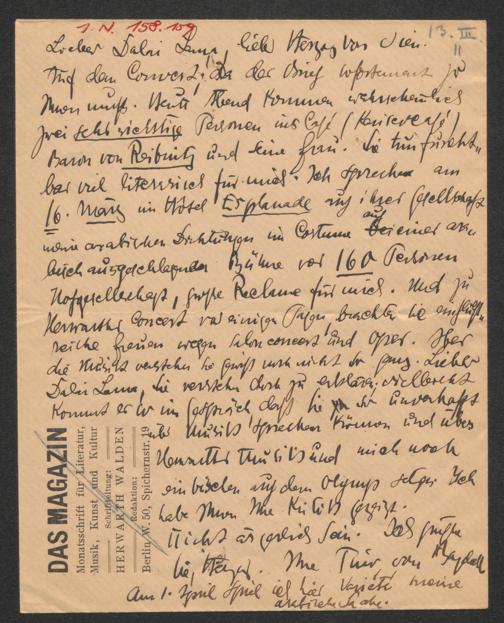 1. N. 158.159
13. III.
II
Lieber Dalai Lama, lieber Herzog von Wien.
Auf dem Convert, da der Brief sofort
Ihnen muß. Heute Abend kommen wahrscheinlich
zwei sehr wichtige Personen ins Café (Kaisercafé)
Baron von Reibnitz und seine Frau. Sie tun furcht-
bar viel literarisch für mich. Ich spreche am
16. März im Hôtel Esplanade auf ihrer Gesellschaft
meine arabischen Dichtungen im Costüm auf einer
ausgeschlagenen Bühne vor 160 Personen
Hofgesellschaft, große Reclame für mich. Und zu
Herwarths Concert vor einigen Tagen, brachte sie einfluß-
reiche Frauen wegen Salonconcert und Oper. Aber
die Musik verstehn sie gewiß noch nicht so ganz. Lieber
Dalai Lama, Sie verstehn doch zu erklären, vielleicht
kommt es so im Gespräch, daß Sie so unverhofft
über Musik sprechen können und über
Herwarths Musik und mich noch
ein bischen auf dem Olymp setzen. Ich
habe Ihnen Ihre Kritik gezeigt.
Nicht ärgerlich sein. Ich grüße
Sie, Herzog. Ihre Tino von Bagdad
Am 1. April spiel ich hier Varieté meine
DAS MAGAZIN
Monatsschrift für Literatur,
Musik, Kunst und Kultur
Schriftleitung:
HERWARTH WALDEN
Redaktion:
Berlin W. 50, Spichernstr. 19